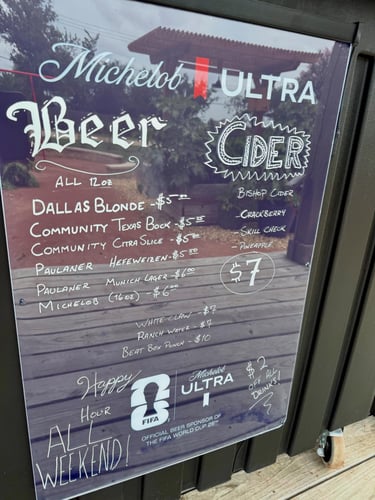 Michelob ULTRA
Beer
ALL 12oz
DALLAS BLONDE - $5.00
COMMUNITY TEXAS BOCK - $5.00
COMMUNITY CITRA SLICE - $5.00
PAULANER HEFEWEIZEN - $5.00
PAULANER MUNICH LAGER - $6.00
MICHELOB (16oz) - $6.00
CIDER
BISHOP CIDER
- CRACKBERRY
- SKILL CHECK
- PINEAPPLE
$7
WHITE CLAW - $7
RANCH WATER - $7
BEAT BOX PUNCH - $10
Happy
HOUR
ALL
WEEKEND!
FIFA
Michelob
ULTRA
OFFICIAL BEER SPONSOR OF
THE FIFA WORLD CUP 26™
$2
OFF ALL
DRINKS!